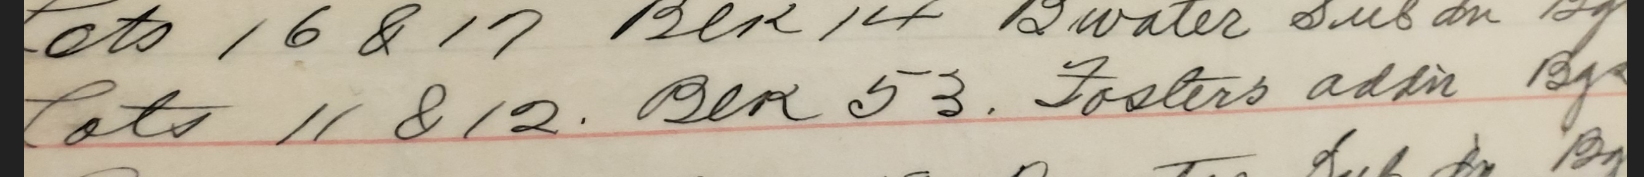 Lots 16 & 17 Blk 14 Bwater Sub dn Bg
Lots 11 & 12. Blk 53. Fosters addn Bgs
Sub dn Bg